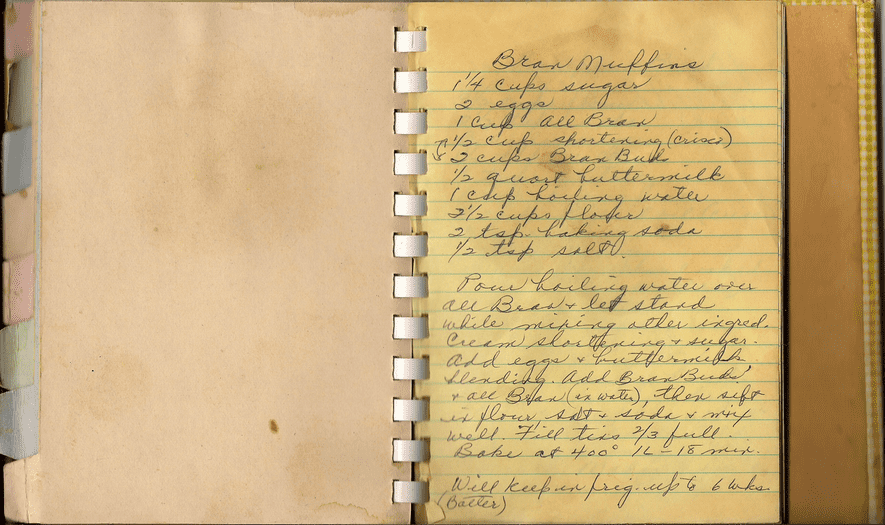 Bran Muffins
1 1/4 cups sugar
2 eggs
1 cup All Bran
1/2 cup shortening (crisco)
2 cups Bran Buds
1/2 quart buttermilk
1 cup boiling water
2 1/2 cups flour
2 tsp. baking soda
1/2 tsp salt.
Pour boiling water over
all Bran & let stand
while mixing other ingred.
Cream shortening & sugar.
Add eggs & buttermilk
blending. Add Bran Buds
& all Bran (in water), then sift
in flour, salt & soda & mix
well. Fill tins 2/3 full.
Bake at 400° 16-18 min.
Will keep in frig. up to 6 wks.
(Batter)